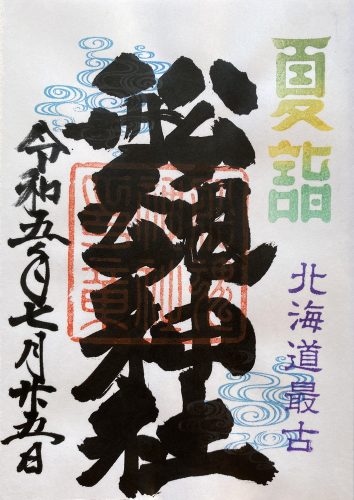 夏詣
北海道最古
舩魂神社
令和五年七月廿五日